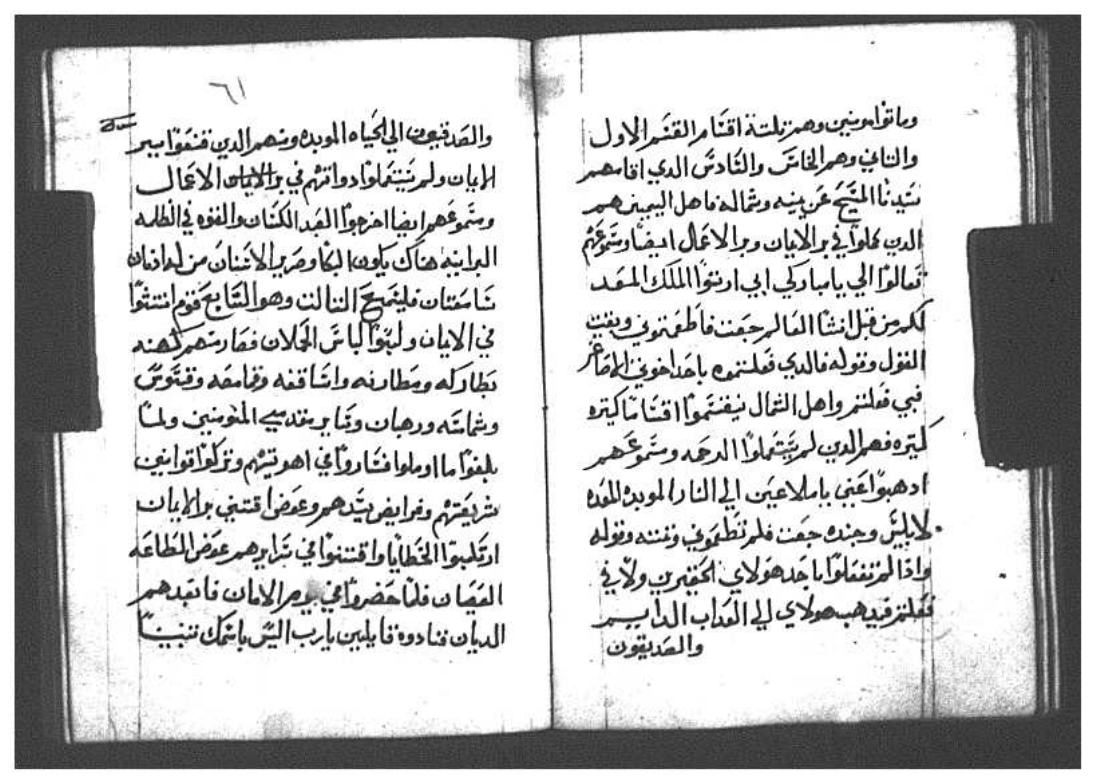 وماتوا مومنين وهم ثلثة اقسام القسم الاول
والثاني وهم الخامس والسادس الدي اقامهم
سيدنا المسيح عن يمينه وشماله فاهل اليمين هم
الدين كملوا في بر الايمان وبر الاعمال ايضا وسموعهم
تعالوا الي يا مباركي ابي ارتوا الملك المعد
لكم من قبل انشا العالم جعت فاطعمتوني وبقيت
القول وقوله فالدي فعلتموه باحد اخوتي الاصاغر
فبي فعلتم واهل الشمال ينقسموا اقساما كتيره
كتيره فهم الدين لم يستعملوا الرحمه وسموعهم
ادهبوا عني يا ملاعين الي النار الموبده المعده
لابليس وجنده جعت فلم تطعموني وتمته وقوله
وادا لم تفعلوا باحد هولاي الحقيرين ولا بي
فعلتم فيدهب هولاي الي العداب الدايم
والصديقون
٦١
والصديقون الي الحياه الموبده ومنهم الدين قنعوا ببر
الايمان ولم يستعملوا دواتهم في بر الايمان الاعمال
وسموعهم ايضا اخرجوا العبد الكسلان والقوه في الظلمه
البرانيه هناك يكون البكا وصرير الاسنان من له ادنان
سامعتان فليسمع التالت وهو السابع قوم انتشوا
في الايمان ولبسوا لباس الحملان فصار منهم كهنه
بطاركه ومطارنه واساقفه وقمامصه وقسوس
وشمامسه ورهبان وساير مقدسي المومنين ولما
بلغوا ما املوا فساروا في اهويتهم وتركوا قوانين
شريعتهم وفرايض سيدهم وعوض اقتني بر الايمان
ارتكبوا الخطايا واقتنوا في سرايرهم عوض الطاعه
العصيان فلما حضروا في يوم الامان فابعدهم
الديان فنادوه قايلين يارب اليس باسمك تنبينا